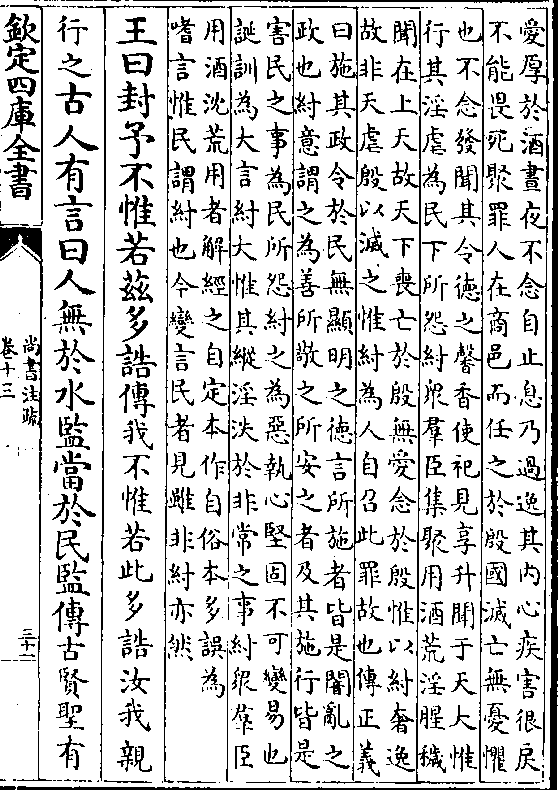 愛厚於酒晝夜不念自止息乃過逸其内心疾害很戾
不能畏死聚罪人在商邑而任之於殷國滅亡無憂懼
也不念發聞其令德之馨香使祀見享升聞于天大惟
行其淫虐為民下所怨紂眾羣臣集聚用酒荒淫腥穢
聞在上天故天下喪亡於殷無愛念於殷惟以紂奢逸
故非天虐殷以滅之惟紂為人自召此罪故也傳正義
曰施其政令於民無顯明之德言所施者皆是闇亂之
政也紂意謂之為善所敬之所安之者及其施行皆是
害民之事為民所怨紂之為惡執心堅固不可變易也
誕訓為大言紂大惟其縱淫泆於非常之事紂眾羣臣
用酒沈荒用者解經之自定本作自俗本多誤為
嗜言惟民謂紂也今變言民者見雖非紂亦然
王曰封予不惟若茲多誥傳我不惟若此多誥汝我親
行之古人有言曰人無於水監當於民監傳古賢聖有
欽定四庫全書
尚書注疏
卷十三